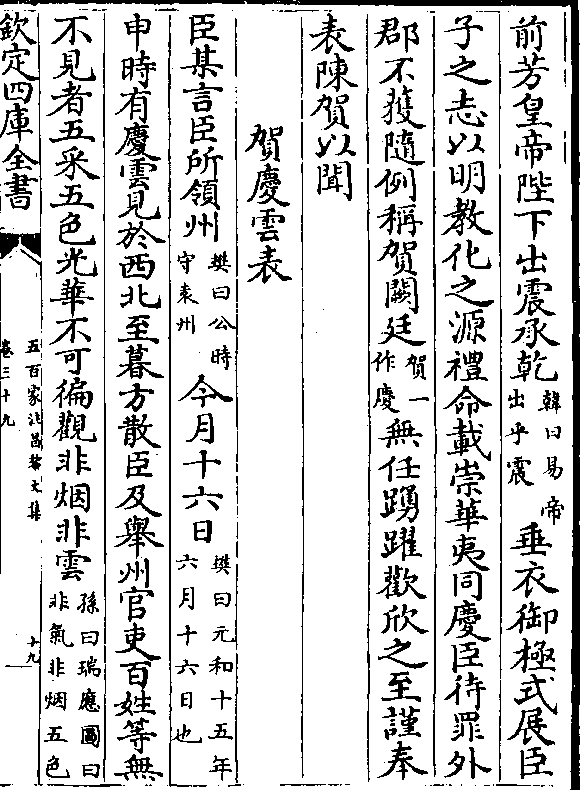 前芳皇帝陛下出震承乾韓曰易帝出乎震垂衣御極式展臣
子之志以明教化之源禮命載崇華夷同慶臣待罪外
郡不獲隨例稱賀闕廷賀一作慶無任踴躍歡欣之至謹奉
表陳賀以聞
賀慶雲表
臣某言臣所領州樊曰公時守袁州今月十六日樊曰元和十五年六月十六日也
申時有慶雲見於西北至暮方散臣及舉州官吏百姓等無
不見者五采五色光華不可徧觀非烟非雲孫曰瑞應圖曰非氣非烟五色
欽定四庫全書
五百家注昌黎文集
卷三十九
十九